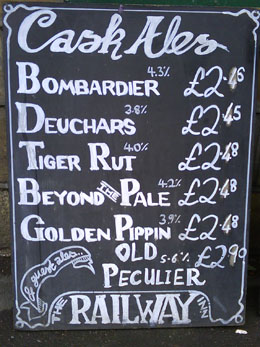 Cask Ales
BOMBARDIER 4.3% £2.46
DEUCHARS 3.8% £2.45
TIGER RUT 4.0% £2.48
BEYOND THE PALE 4.2% £2.48
GOLDEN PIPPIN 3.9% £2.48
OLD PECULIER 5.6% £2.90
& guest ales...
THE RAILWAY INN